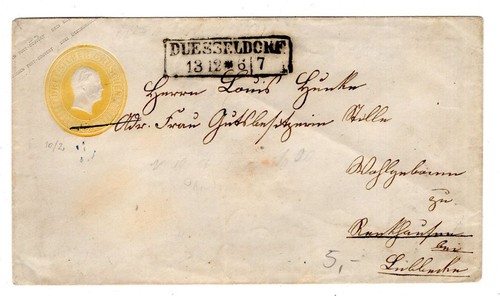 DUESSELDORF
13 12 * 6 | 7
Herrn Louis Hunke
Adr. Frau Gutsbesitzerin Stille
Wohlgeboren
zu
Renkhausen
bei
Lübbecke
5,-